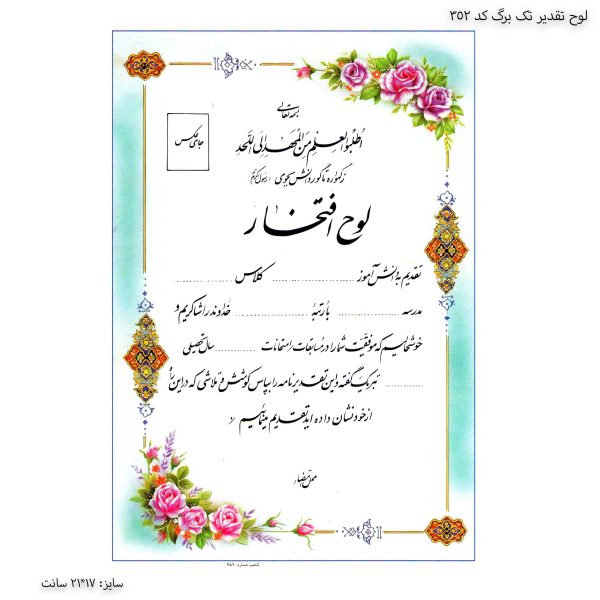 لوح تقدیر تک برگ کد ۳۵۲
بسمه تعالی
جای عکس
اُطلُبُوا العِلمَ مِنَ المَهدِ اِلَی اللَّحَدِ
ز گهواره تا گور دانش بجوی (رسول اکرم)
لوح افتخار
تقدیم به دانش آموز .................... کلاس ....................
مدرسه .................... با رتبهٔ .................... خداوند را شاکریم و
خوشحالیم که موفقیت شما را در مسابقات / امتحانات .......... سال تحصیلی
.......... تبریک گفته و این تقدیرنامه را بپاس کوشش و تلاشی که در این راه
از خود نشان داده اید تقدیم مینمائیم
محل امضاء
تذهیب شماره: ۳۵۲
سایز: ۱۷*۲۱ سانت